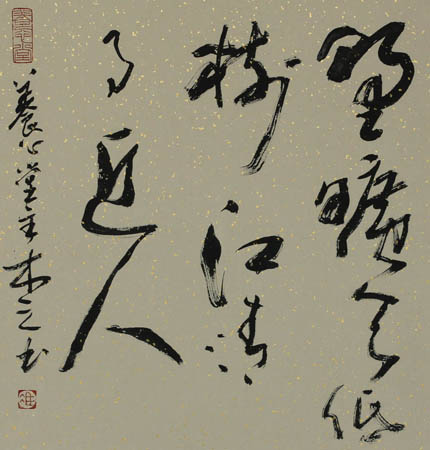 野曠天低
樹江清
月近人
養心堂主木之書